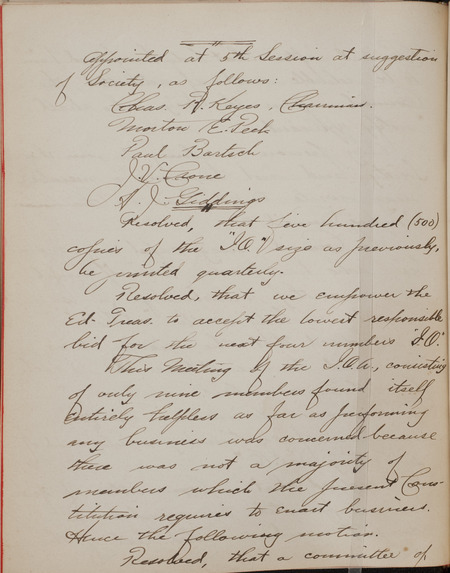 appointed at 5th Session at suggestion
of Society, as follows:
Chas. R. Keyes, Chairman.
Morton E. Peck
Paul Bartsch
J. V. Crone
Giddings
Resolved, that five hundred (500)
copies of the "I.O." size as previously,
be printed quarterly.
Resolved, that we empower the
Ed. Treas. to accept the lowest responsible
bid for the next four numbers "I.O."
This Meeting of the I.O.A., consisting
of only nine members found itself
entirely helpless as far as preforming
any business was concerned because
there was not a majority of
members which the present Con-
stitution requires to enact business.
Hence the following motion.
Resolved, that a committee of